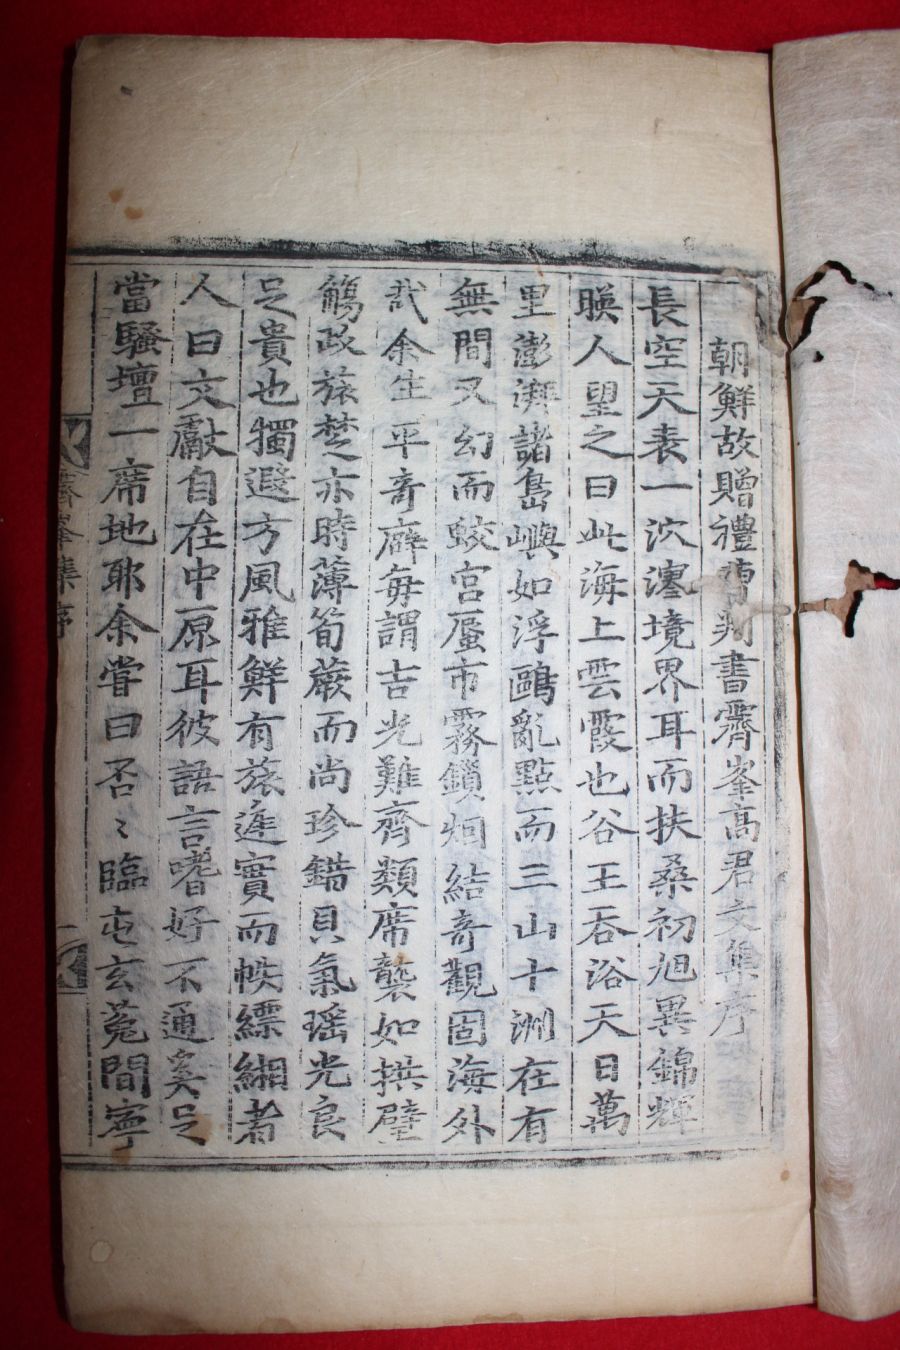 朝鮮故贈禮曹判書霽峯高君文集序
長空天表一沆瀣境界耳而扶桑初旭異錦輝
暎人望之曰此海上雲霞也谷王吞浴天日萬
里澎湃諸島嶼如浮鷗亂點而三山十洲在有
無間又幻而蛟宮蜃市霧鎖烟結奇觀固海外
哉余生平奇癖每謂吉光難齊類席襲如拱璧
觴政旅楚亦時薄筍蕨而尚珍錯貝氣瑶光良
足貴也獨遐方風雅鮮有旅進實而帙縹緗者
人曰文獻自在中原耳彼語言嗜好不通奚足
當騷壇一席地耶余嘗曰否〻臨屯玄菟間寧
霽峯集序